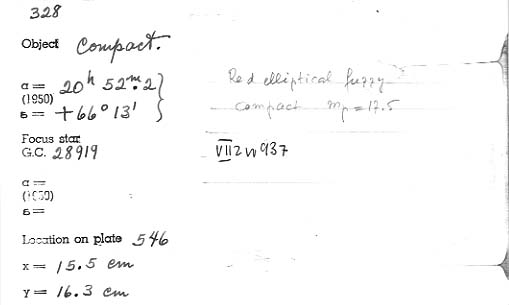 328
Object Compact.
α = 20h 52m.2
(1950)
δ = +66° 13'
Red elliptical fuzzy
compact mp = 17.5
Focus star
G.C. 28919
VII Zw 937
α =
(1950)
δ =
Location on plate 546
x = 15.5 cm
Y = 16.3 cm